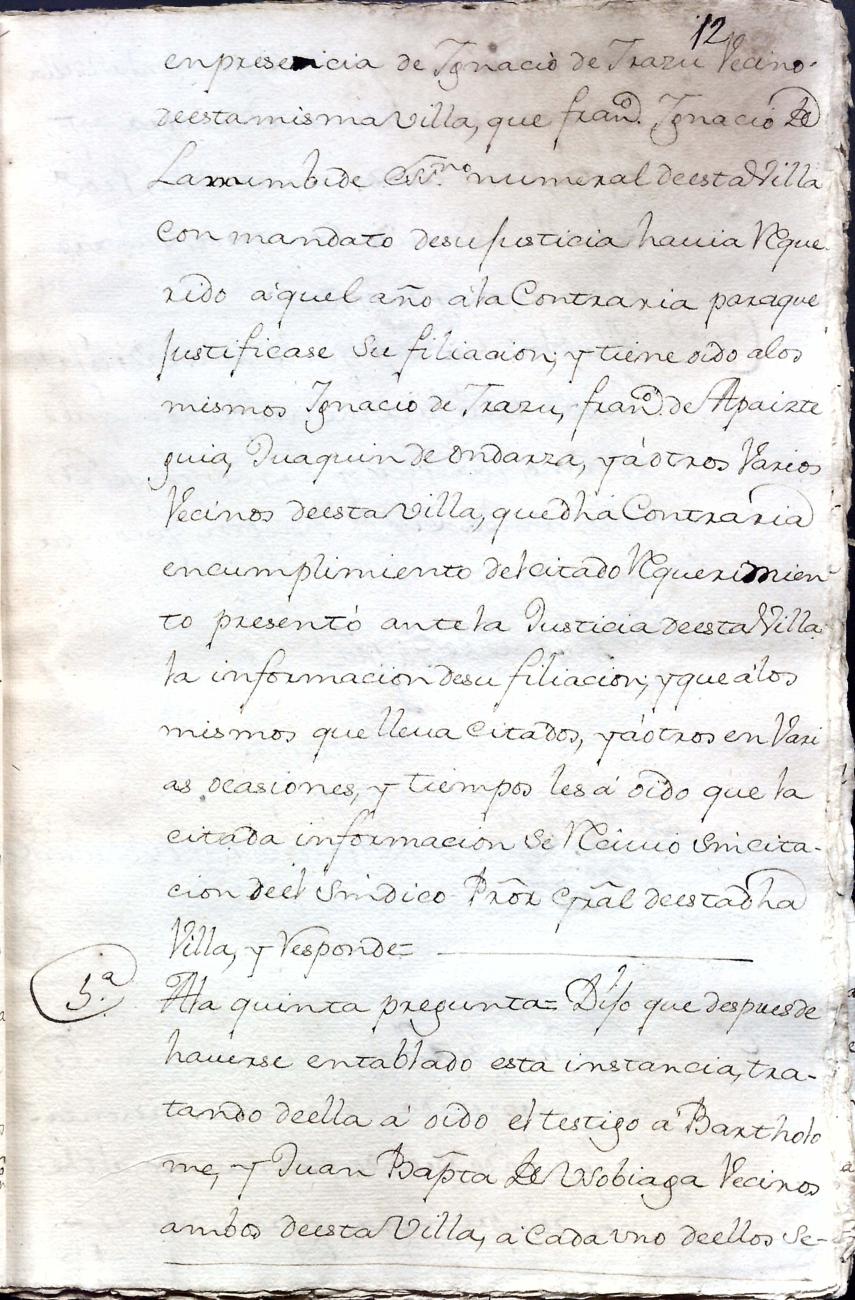 12
en presencia de Ygnacio de Trazu Vecino
de esta misma Villa, que franco. Ygnacio de
Larrumbide Essno numeral de esta Villa
con mandato de su Justicia hauia Reque
rido a quel año ala Contraria para que
Justificase su filiacion, y tiene oido alos
mismos Ygnacio de Trazu, franco. de Apaizte
guia, Juaquin de Ondarza, y á otros Varios
Vecinos de esta Villa, que dha Contraria
en cumplimiento del citado Requerimien
to presentó ante la Justicia de esta Villa
la informacion de su filiacion, y que alos
mismos que lleua citados, y á otros en Vari
as ocasiones, y tiempos les á oido que la
citada informacion se Reciuió sin cita-
cion de el Sindico Prōr Grāl de esta dha
Villa, y Responde=
5.a
A la quinta pregunta= Dijo que despues de
hauerse entablado esta instancia, tra-
tando de ella á oido el testigo a Bartholo
me, y Juan Bapta de Usobiaga Vecinos
ambos de esta Villa, a cada uno de ellos se-